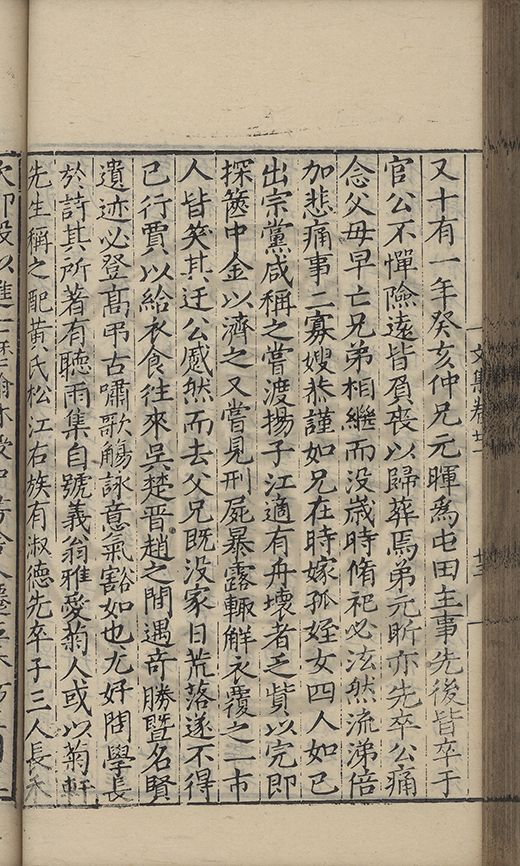 又十有一年癸亥仲兄元暉爲屯田主事先後皆卒于
官公不憚險遠皆負喪以歸葬焉弟元昕亦先卒公痛
念父母早亡兄弟相繼而没歲時脩祀必泫然流涕倍
加悲痛事二寡嫂恭謹如兄在時嫁孤姪女四人如已
出宗黨咸稱之嘗渡揚子江適有舟壞者乏貲以完即
探篋中金以濟之又嘗見刑屍暴露輙觧衣覆之一市
人皆笑其迂公慼然而去父兄既没家日荒落遂不得
已行賈以給衣食往來吳楚晋趙之間遇竒勝暨名賢
遺迹必登髙弔古嘯歌觴詠意氣豁如也尤好問學長
於詩其所著有聽雨集自號義翁雅愛菊人或以菊軒
先生稱之配黄氏松江右族有淑德先卒子三人長
文集卷廿二